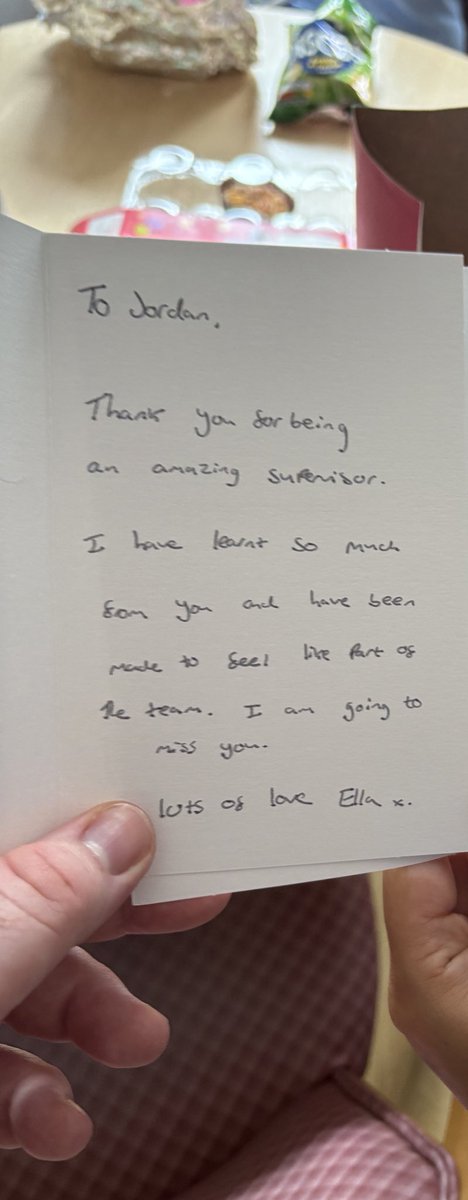 To Jordan,
Thank you for being
an amazing supervisor.
I have learnt so much
from you and have been
made to feel like part of
the team. I am going to
miss you.
lots of love Ella x.